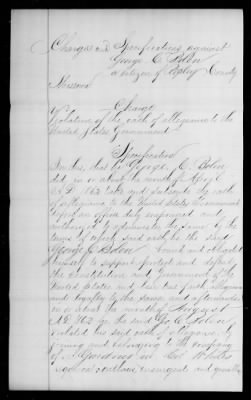 Charges and Specifications against
George C. Bolin
a citizen of Ralay County
Missouri
Charge
Violation of the oath of allegiance to the
United States Government
Specification
In this, that he George C. Bolin
did, on or about the month of
A.D. 1862 take and subscribe the oath
of allegiance to the United States Government
before an officer duly empowered and
authorized to administer the same by the
terms of which said oath, he the said
George C. Bolin and obligated
himself to support protect and defend
the constitution and Government of the
United States and bear true faith allegiance
and loyalty to the same and afterwards
on or about the month of August
A.D. 1862 he the said Geo. C. Bolin
violated his said oath of allegiance by
joining and belonging to the company
of
outlaw insurgent and guerrilla